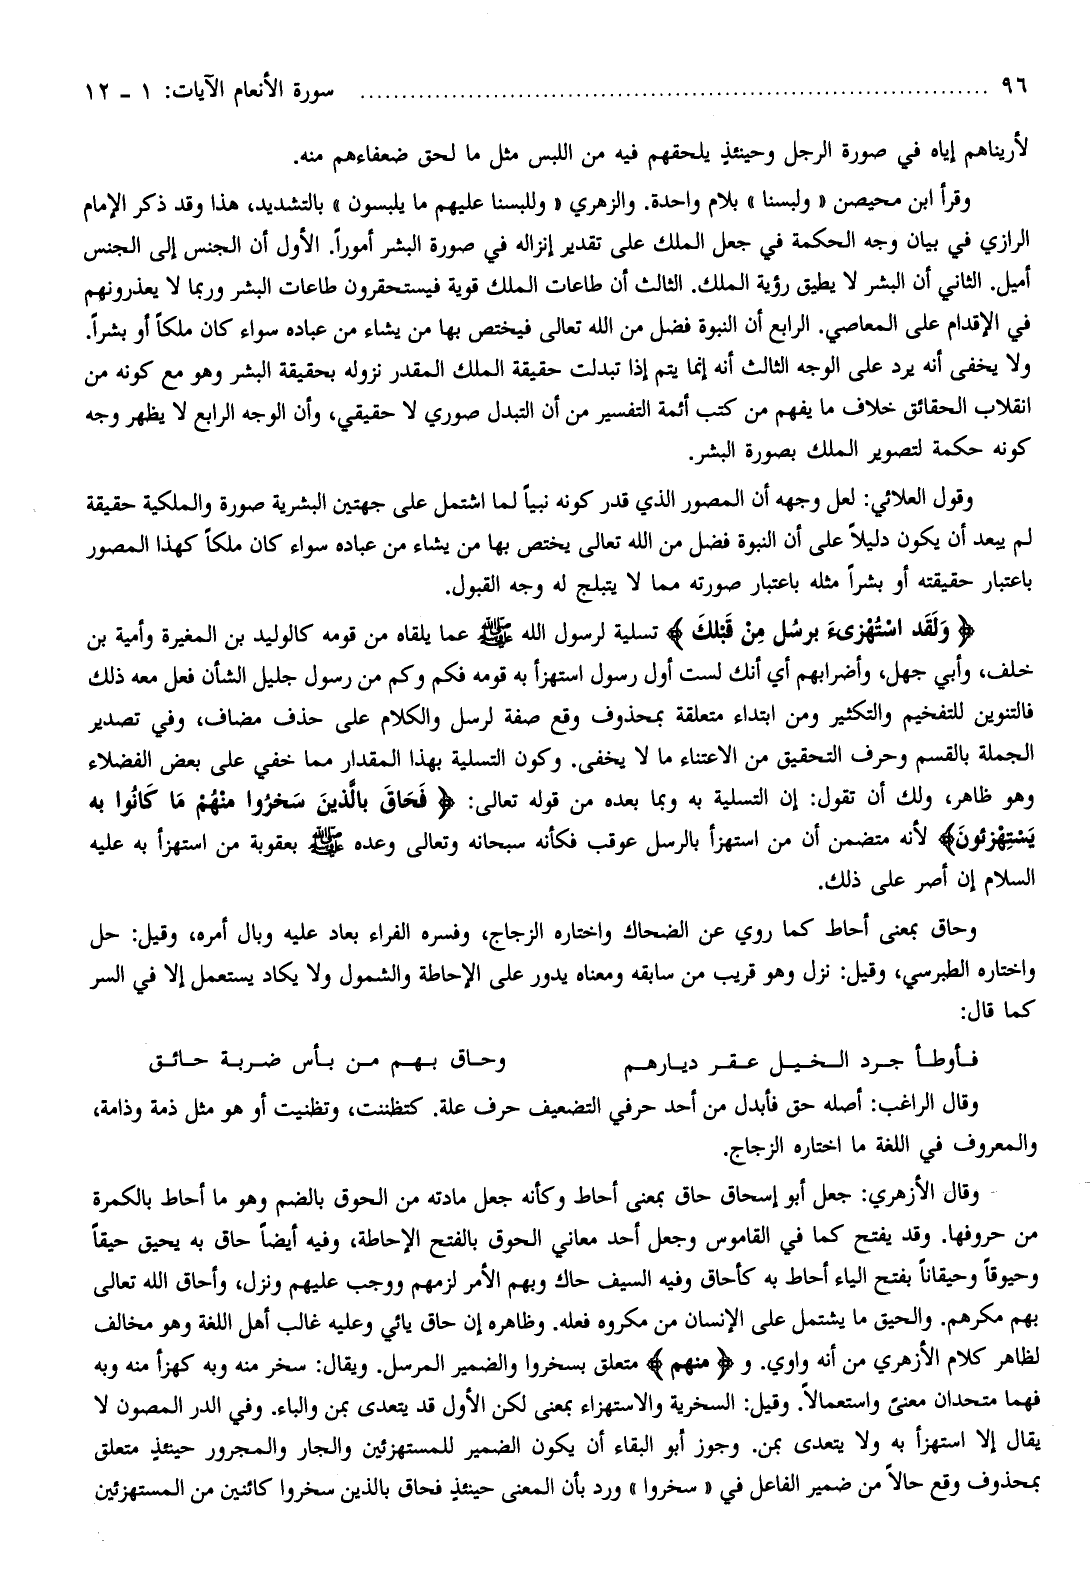 ٩٦ ........................................................ سورة الأنعام الآيات: ١ - ١٢
لأريناهم إياه في صورة الرجل وحينئذٍ يلحقهم فيه من اللبس مثل ما لحق ضعفاءهم منه.
وقرأ ابن محيصن « ولبسنا » بلام واحدة. والزهري « وللبسنا عليهم ما يلبسون » بالتشديد، هذا وقد ذكر الإمام
الرازي في بيان وجه الحكمة في جعل الملك على تقدير إنزاله في صورة البشر أموراً. الأول أن الجنس إلى الجنس
أميل. الثاني أن البشر لا يطيق رؤية الملك. الثالث أن طاعات الملك قوية فيستحقرون طاعات البشر وربما لا يعذرونهم
في الإقدام على المعاصي. الرابع أن النبوة فضل من الله تعالى فيختص بها من يشاء من عباده سواء كان ملكاً أو بشراً.
ولا يخفى أنه يرد على الوجه الثالث أنه إنما يتم إذا تبدلت حقيقة الملك المقدر نزوله بحقيقة البشر وهو مع كونه من
انقلاب الحقائق خلاف ما يفهم من كتب أئمة التفسير من أن التبدل صوري لا حقيقي، وأن الوجه الرابع لا يظهر وجه
كونه حكمة لتصوير الملك بصورة البشر.
وقول العلائي: لعل وجهه أن المصور الذي قدر كونه نبياً لما اشتمل على جهتين البشرية صورة والملكية حقيقة
لم يبعد أن يكون دليلاً على أن النبوة فضل من الله تعالى يختص بها من يشاء من عباده سواء كان ملكاً كهذا المصور
باعتبار حقيقته أو بشراً مثله باعتبار صورته مما لا يتبلج له وجه القبول.
﴿ وَلَقَد اسْتُهْزِىءَ برسُل مِنْ قَبْلكَ ﴾ تسلية لرسول الله ﷺ عما يلقاه من قومه كالوليد بن المغيرة وأمية بن
خلف، وأبي جهل، وأضرابهم أي أنك لست أول رسول استهزأ به قومه فكم وكم من رسول جليل الشأن فعل معه ذلك
فالتنوين للتفخيم والتكثير ومن ابتداء متعلقة بمحذوف وقع صفة لرسل والكلام على حذف مضاف، وفي تصدير
الجملة بالقسم وحرف التحقيق من الاعتناء ما لا يخفى. وكون التسلية بهذا المقدار مما خفي على بعض الفضلاء
وهو ظاهر، ولك أن تقول: إن التسلية به وبما بعده من قوله تعالى: ﴿ فَحَاقَ بالَّذينَ سَخرُوا منْهُمْ مَا كَانُوا به
يَسْتِهْزئونَ﴾ لأنه متضمن أن من استهزأ بالرسل عوقب فكأنه سبحانه وتعالى وعده ﷺ بعقوبة من استهزأ به عليه
السلام إن أصر على ذلك.
وحاق بمعنى أحاط كما روي عن الضحاك واختاره الزجاج، وفسره الفراء بعاد عليه وبال أمره، وقيل: حل
واختاره الطبرسي، وقيل: نزل وهو قريب من سابقه ومعناه يدور على الإحاطة والشمول ولا يكاد يستعمل إلا في السر
كما قال:
فـأوطـأ جرد الـخـيـل عـقـر ديـارهـم    وحـاق بـهـم مـن بـأس ضـربـة حـائـق
وقال الراغب: أصله حق فأبدل من أحد حرفي التضعيف حرف علة. كتظننت، وتظنيت أو هو مثل ذمة وذامة،
والمعروف في اللغة ما اختاره الزجاج.
وقال الأزهري: جعل أبو إسحاق حاق بمعنى أحاط وكأنه جعل مادته من الحوق بالضم وهو ما أحاط بالكمرة
من حروفها. وقد يفتح كما في القاموس وجعل أحد معاني الحوق بالفتح الإحاطة، وفيه أيضاً حاق به يحيق حيقاً
وحيوقاً وحيقاناً بفتح الياء أحاط به كأحاق وفيه السيف حاك وبهم الأمر لزمهم ووجب عليهم ونزل، وأحاق الله تعالى
بهم مكرهم. والحيق ما يشتمل على الإنسان من مكروه فعله. وظاهره إن حاق يائي وعليه غالب أهل اللغة وهو مخالف
لظاهر كلام الأزهري من أنه واوي. و ﴿ منهم ﴾ متعلق بسخروا والضمير المرسل. ويقال: سخر منه وبه كهزأ منه وبه
فهما متحدان معنىً واستعمالاً. وقيل: السخرية والاستهزاء بمعنى لكن الأول قد يتعدى بمن والباء. وفي الدر المصون لا
يقال إلا استهزأ به ولا يتعدى بمن. وجوز أبو البقاء أن يكون الضمير للمستهزئين والجار والمجرور حينئذٍ متعلق
بمحذوف وقع حالاً من ضمير الفاعل في « سخروا » ورد بأن المعنى حينئذٍ فحاق بالذين سخروا كائنين من المستهزئين